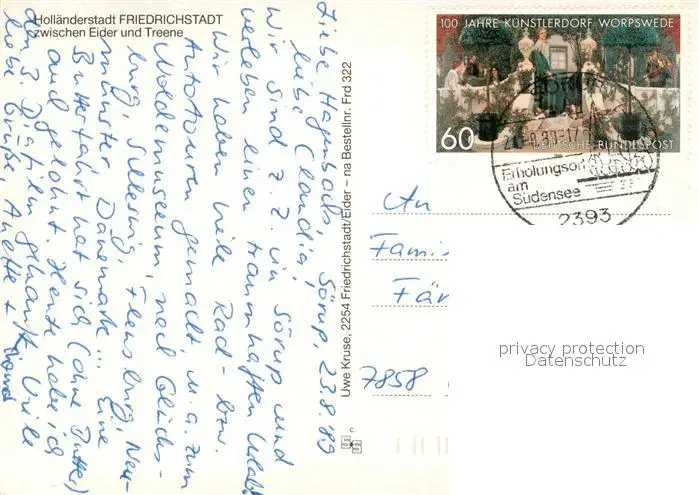 Holländerstadt FRIEDRICHSTADT
zwischen Eider und Treene
Sörup, 23.8.89
Liebe Hagenbachs,
liebe Claudia!
Wir sind z.Z. in Sörup und
verleben einen traumhaften Urlaub.
Wir haben viele Rad- bzw.
Autotouren gemacht, u.a. zum
Noldemuseum, nach Glücks-
burg, Schleswig, Flensburg, Neu-
münster, Dänemark... Eine
Butterfahrt hat sich (ohne Butter)
auch gelohnt. Heute habe ich
den 3. Diafilm gekauft. Viele
liebe Grüße, Anette +
Uwe Kruse, 2254 Friedrichstadt/Eider – na Bestellnr. Frd 322
100 JAHRE KÜNSTLERDORF WORPSWEDE
60
DEUTSCHE BUNDESPOST
Erholungsort
am
Südensee
2393
An
Fami
Fär
7858
privacy protection
Datenschutz